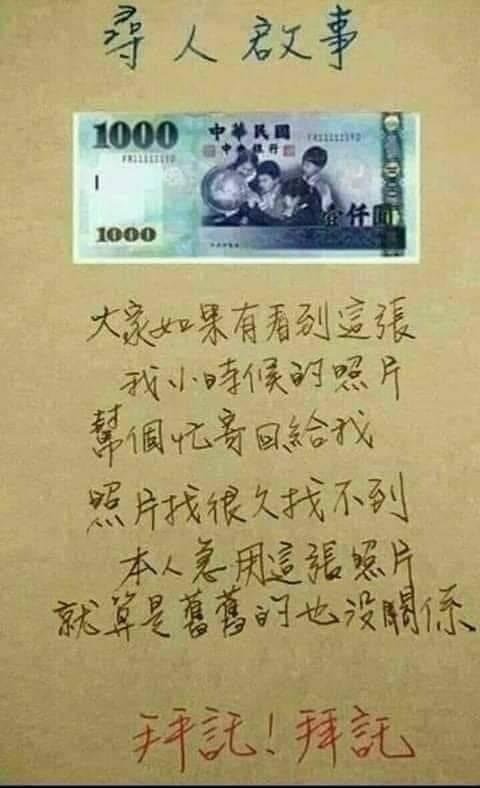 尋人啟事
1000
中華民國
中央銀行
1000
壹仟圓
大家如果有看到這張
我小時候的照片
幫個忙寄回給我
照片找很久找不到
本人急用這張照片
就算是舊舊的也没關係
拜託！拜託